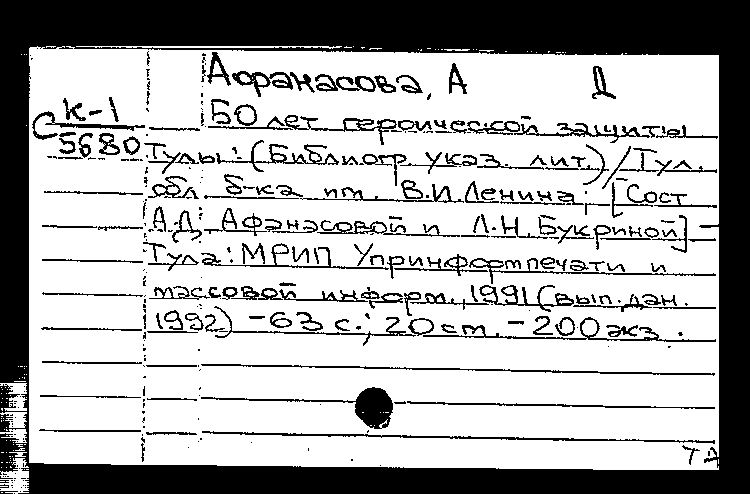 Афанасова, А Д
С К-1
5680
50 лет героической защиты
Тулы: (Библиогр. указ. лит.) / Тул.
обл. б-ка им. В.И.Ленина; [Сост
А.Д. Афанасовой и Л.Н. Букриной] -
Тула: МРИП Упринформпечати и
массовой информ., 1991 (вып. дан.
1992) - 63 с.; 20 см. - 200 экз.